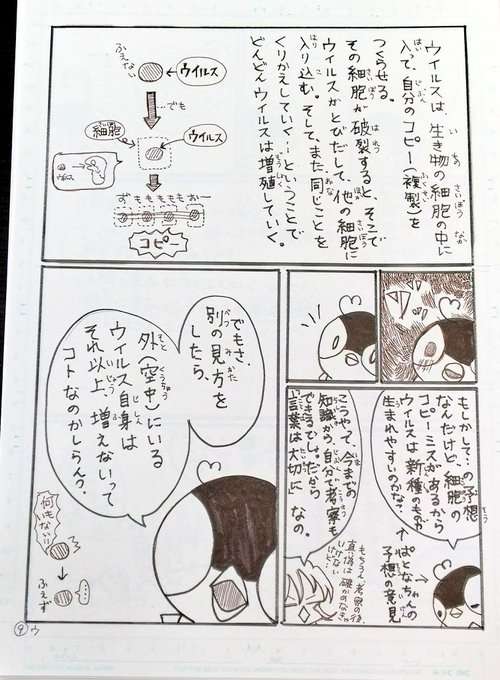 ウィルスは、生き物の細胞の中に
入って、自分のコピー(複製)を
つくらせる。
その細胞が破裂すると、そこで
ウィルスがとびだして、他の細胞に
入り込む。そして、また同じことを
くりかえしていく…ということで
どんどんウィルスは増殖していく。
ふえない
ウィルス
でも
細胞
ウィルス
ずももももおー
コピー
もしかして…の予想
なんだけど、細胞の
コピーミスがあるから
ウィルスは新種のものが
生まれやすいのかな?
ぱとなちゃんの
予想の意見
こうやって、今までの
知識から、自分で考察も
できるひよ。だから
「言葉は大切に」なの。
もちろん、考察の後、
真偽は確かめなきゃ
いけない
けど。
でもさ、
別の見方を
したら、
外(空中)にいる
ウィルス自身は
それ以上、増えないって
コトなのかしらん?
何もない!!
ふえず
9